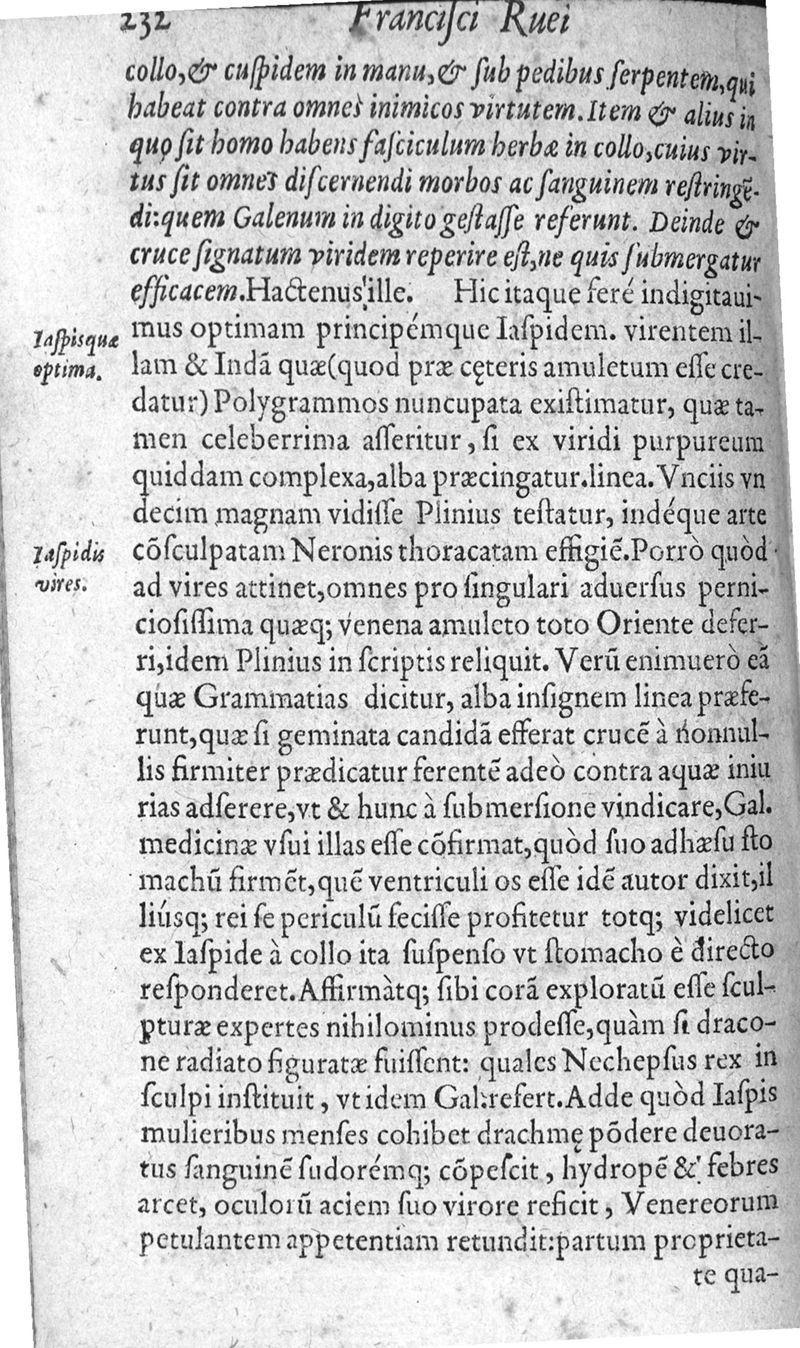 232 Franciſci Ruei
collo,& cuſpidem in manu,& ſub pedibus ſerpentem,qui
habeat contra omnes inimicos virtutem. Item & alius in
quo ſit homo habens faſciculum herbæ in collo,cuius vir-
tus ſit omnes diſcernendi morbos ac ſanguinem reſtringẽ-
di:quem Galenum in digito geſtaſſe referunt. Deinde &
cruce ſignatum viridem reperire eſt,ne quis ſubmergatur
efficacem. Hactenus ille. Hic itaque feré indigitaui-
Iaſpis quæ
optima.
mus optimam principémque Iaſpidem. virentem il-
lam & Indã quæ(quod præ cęteris amuletum eſſe cre-
datur) Polygrammos nuncupata exiſtimatur, quæ ta-
men celeberrima aſſeritur, ſi ex viridi purpureum
quiddam complexa,alba præcingatur.linea. Vnciis vn
decim magnam vidiſſe Plinius teſtatur, indéque arte
Iaſpidis
vires.
cõſculpatam Neronis thoracatam effigiẽ.Porrò quòd
ad vires attinet,omnes pro ſingulari aduerſus perni-
cioſiſſima quæq; venena amuleto toto Oriente defer-
ri,idem Plinius in ſcriptis reliquit. Verũ enimuerò eã
quæ Grammatias dicitur, alba inſignem linea præfe-
runt,quæ ſi geminata candidã efferat crucẽ à nonnul-
lis firmiter prædicatur ferentẽ adeò contra aquæ iniu
rias adſerere,vt & hunc à ſubmerſione vindicare,Gal.
medicinæ vſui illas eſſe cõfirmat,quòd ſuo adhæſu ſto
machũ firmẽt,quẽ ventriculi os eſſe idẽ autor dixit,il
liúsq; rei ſe periculũ feciſſe profitetur totq; videlicet
ex Iaſpide à collo ita ſuſpenſo vt ſtomacho è directo
reſponderet. Affirmàtq; ſibi corã exploratũ eſſe ſcul-
pturæ expertes nihilominus prodeſſe,quàm ſi draco-
ne radiato figuratæ fuiſſent: quales Nechepſus rex in
ſculpi inſtituit, vt idem Gal.refert. Adde quòd Iaſpis
mulieribus menſes cohibet drachmę põdere deuora-
tus ſanguinẽ ſudorémq; cõpeſcit, hydropẽ & febres
arcet, oculorũ aciem ſuo virore reficit, Venereorum
petulantem appetentiam retundit:partum proprieta-
te qua-